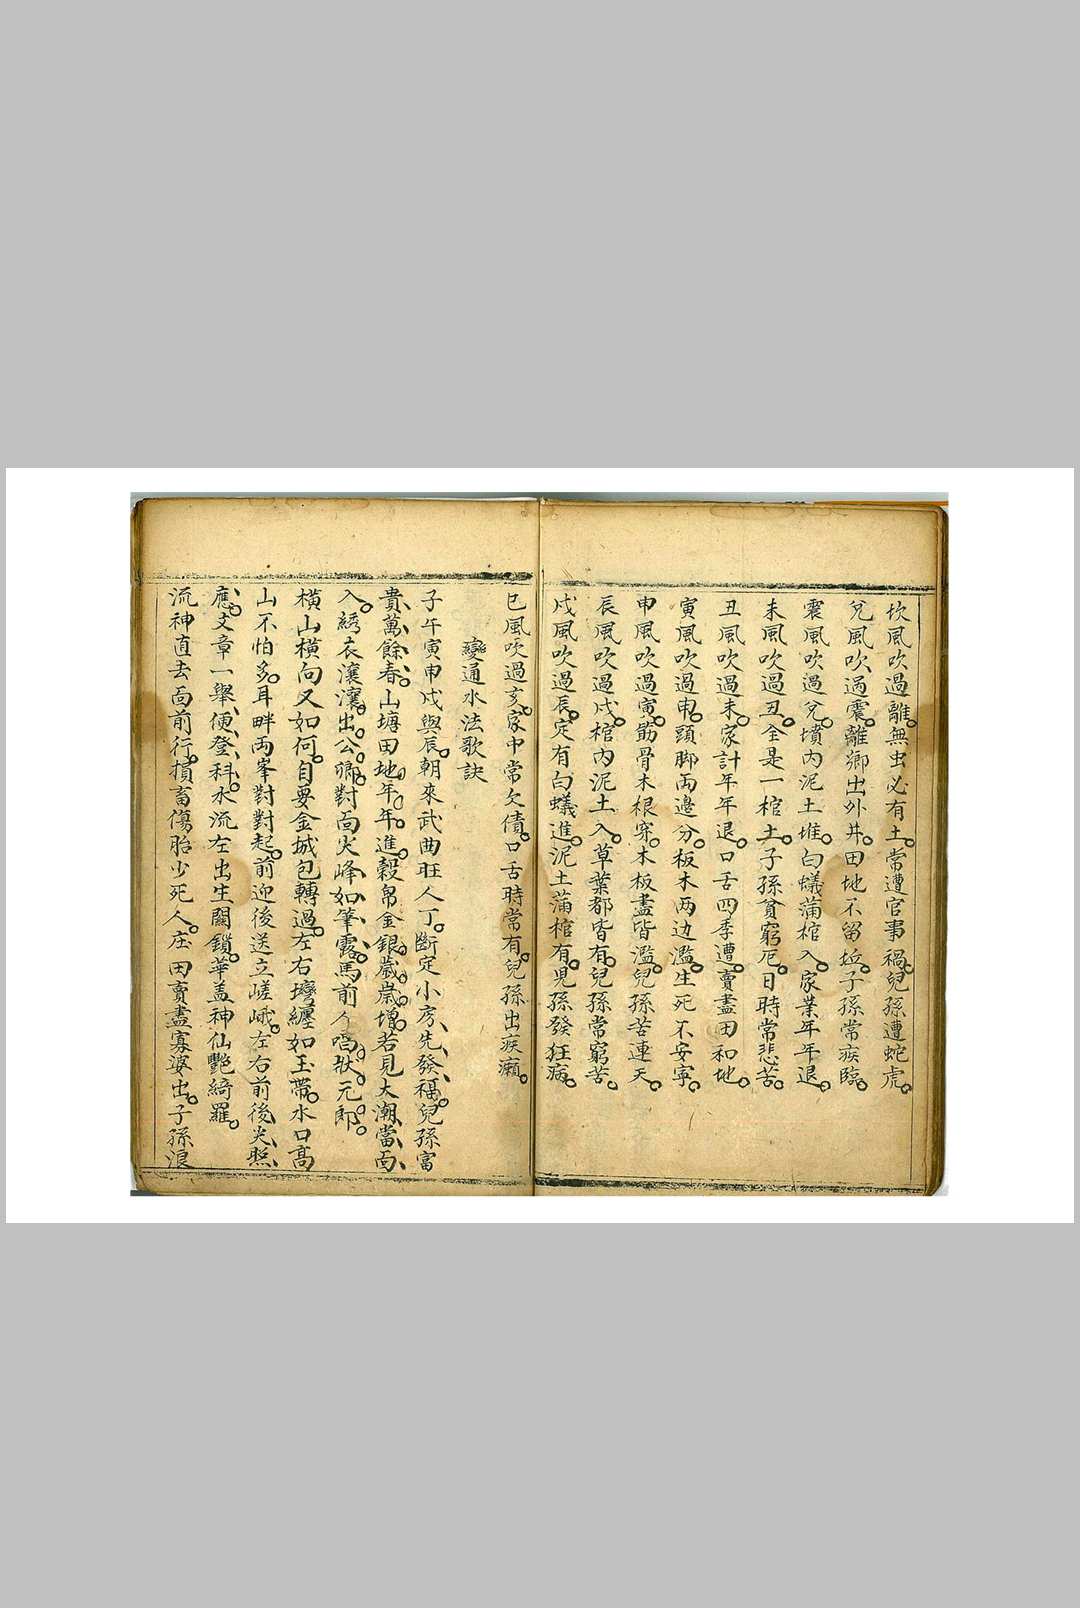 坎風吹過離無虫必有土常遭官事禍兒孫遭蛇虎
兌風吹過震離鄉出外井田地不留坵子孫常疾臨
震風吹過兌墳內泥土堆白蟻蒲棺入家業年年退
未風吹過丑全是一棺土子孫貧窮厄日時常悲苦
丑風吹過未家計年年退口舌四季遭賣盡田和地
寅風吹過申頭脚両邉分板木两边濫生死不安寧
申風吹過寅筋骨木根穿木板盡皆濫兒孫苦連天
辰風吹過戌棺內泥土入草葉都皆有兒孫常窮苦
戌風吹過辰定有白蟻進泥土蒲棺有兒孫發狂病
巳風吹過亥家中常欠債口舌時常有兒孫出疾癩
變通水法歌訣
子午寅申戌與辰朝來武曲旺人丁斷定小房先發福兒孫富
貴萬餘春山塘田地年年進穀帛金銀歲歲增若見大潮當面
入綉衣瀼瀼出公卿對面火峰如筆露馬前今唱狀元郎
橫山橫向又如何自要金城包轉過左右灣纏如玉帶水口高
山不怕多耳畔両峯對對起前迎後送立嵯峨左右前後光照
應文章一舉便登科水流左出生關鎖華盖神仙艷綺羅
流神直去面前行損畜傷胎少死人庄田賣盡寡婆出子孫浪